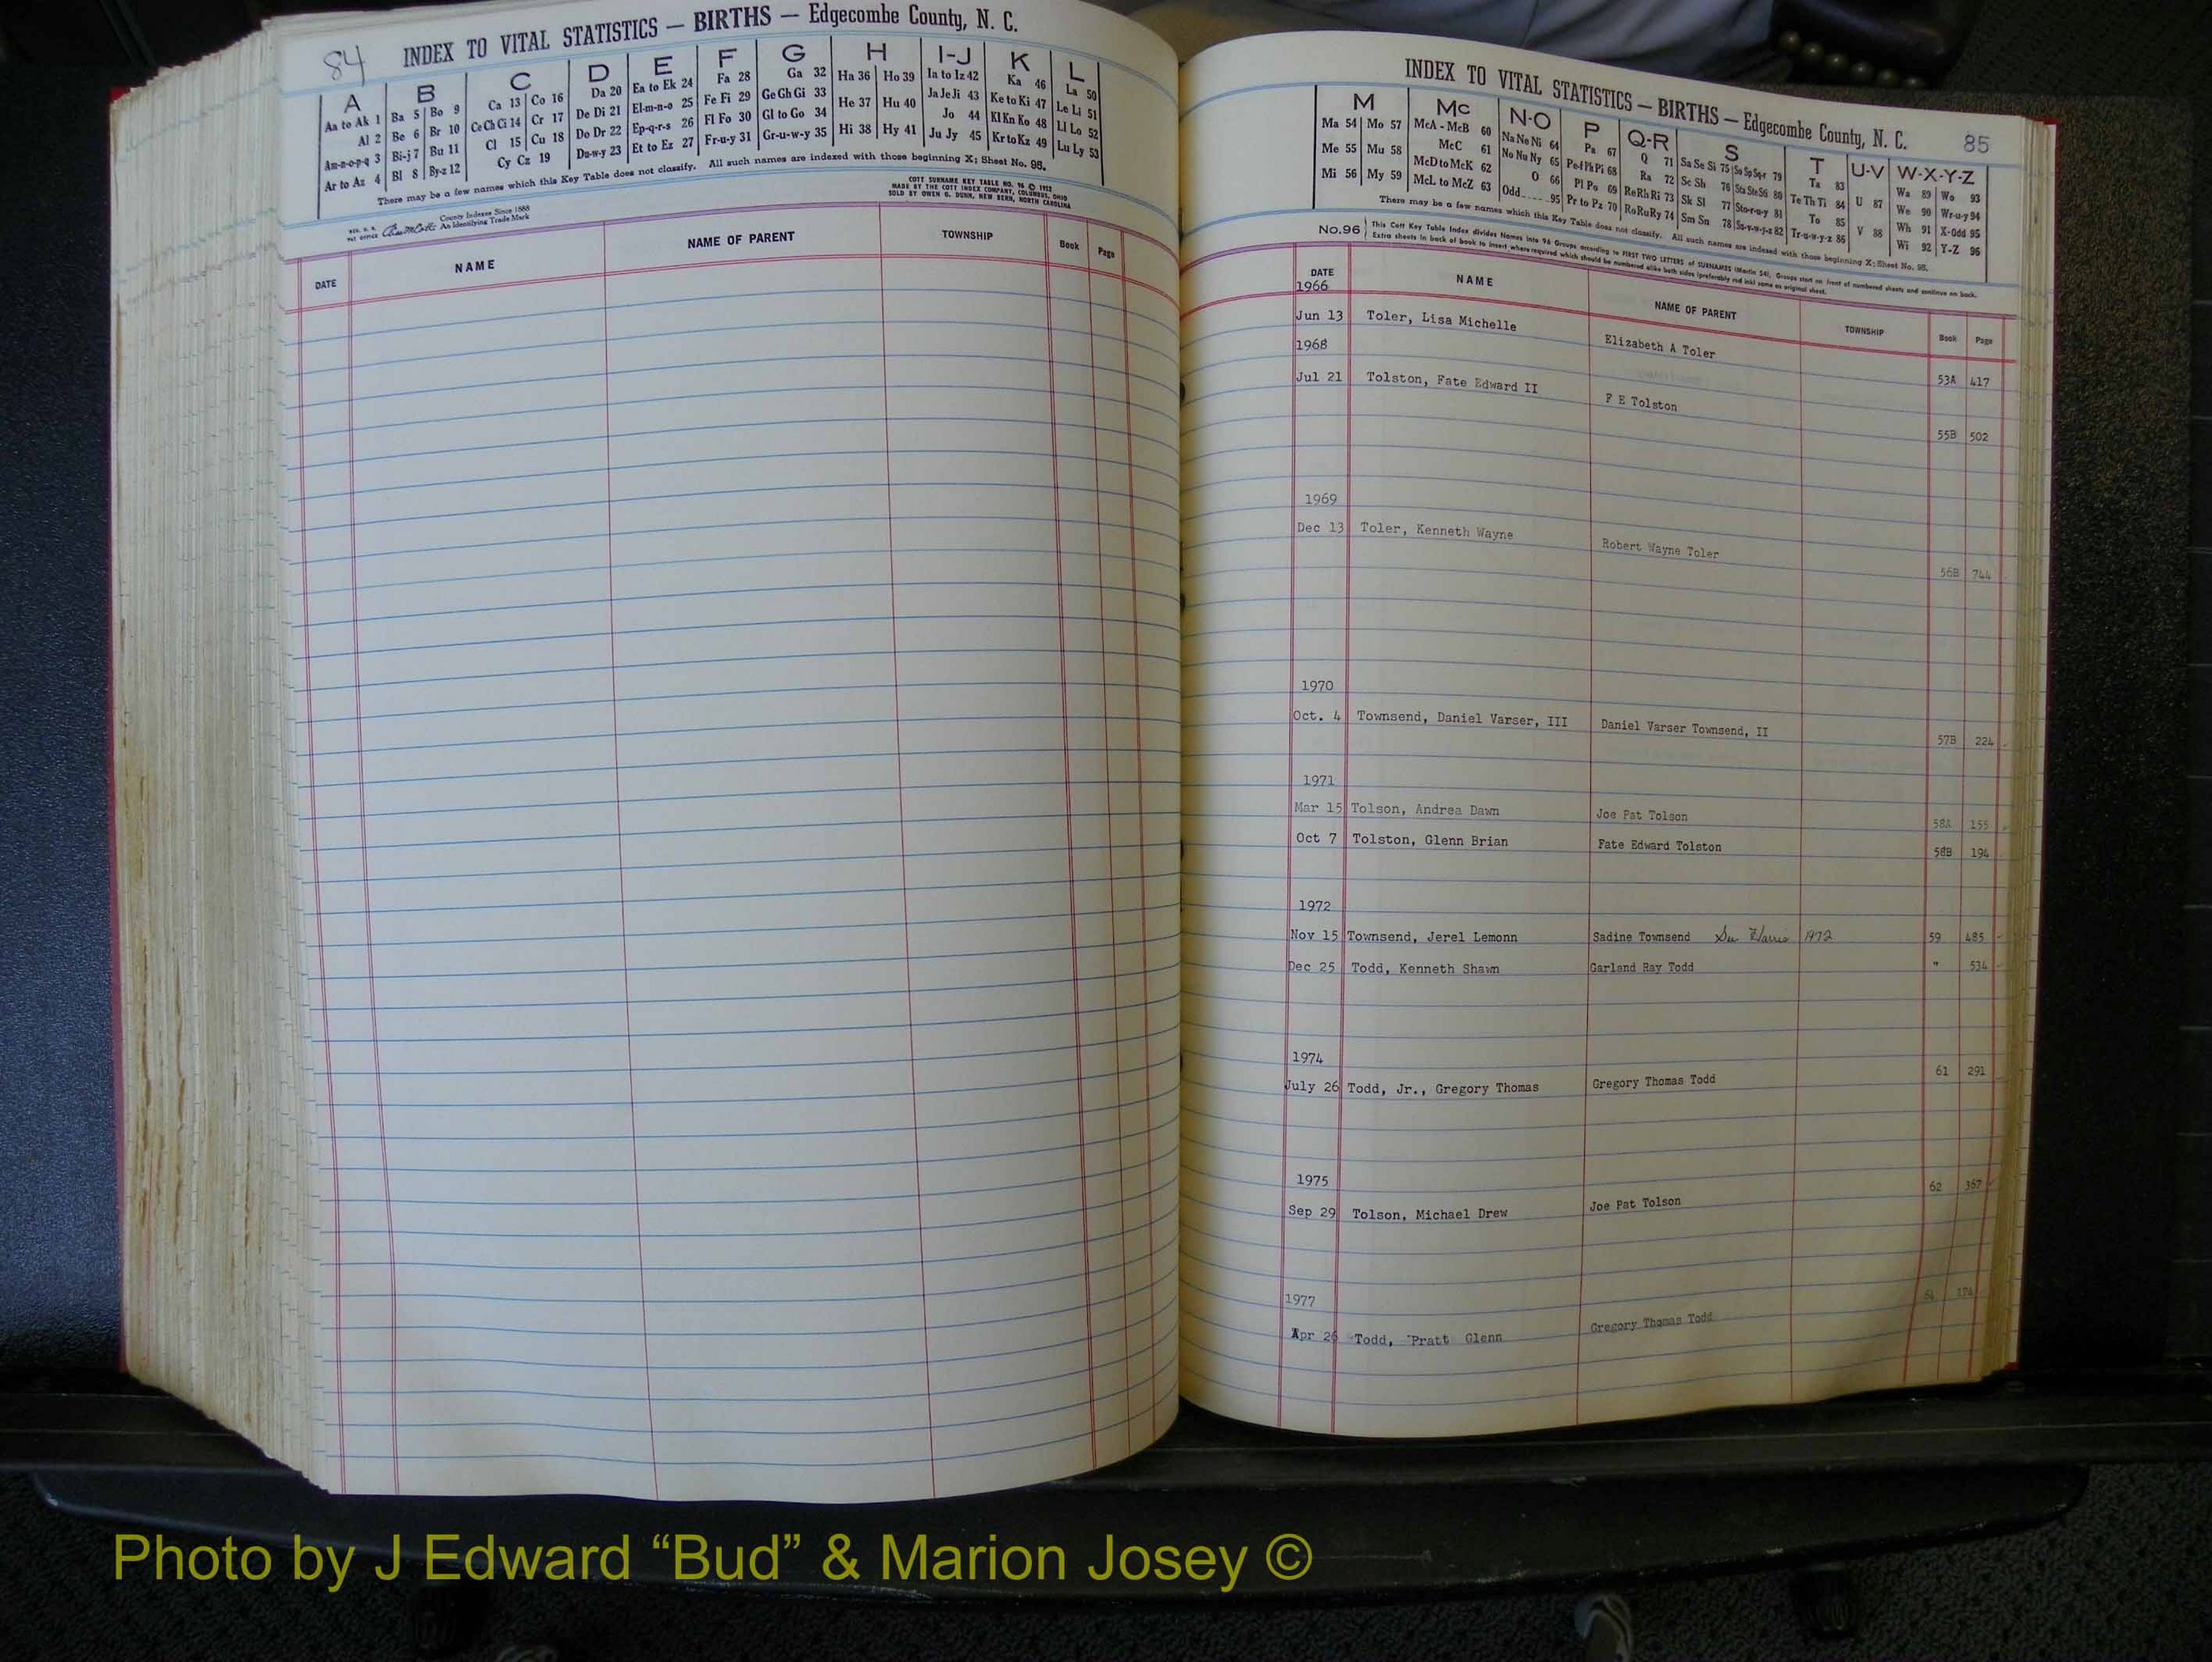 84
INDEX TO VITAL STATISTICS — BIRTHS — Edgecombe County, N. C.
A B C D E F G H I-J K L
Aa to Ak 1 Ba 5 Bo 9 Ca 13 Co 16 Da 20 Ea to Ek 24 Fa 28 Ga 32 Ha 36 Ho 39 Ia to Iz 42 Ka 46 La 50
Al 2 Be 6 Br 10 Ce Ch Ci 14 Cr 17 De Di 21 El-m-n-o 25 Fe Fi 29 Ge Gh Gi 33 He 37 Hu 40 Ja Je Ji 43 Ke to Ki 47 Le Li 51
Am-n-o-p-q 3 Bi-j 7 Bu 11 Cl 15 Cu 18 Do Dr 22 Ep-q-r-s 26 Fl Fo 30 Gl to Go 34 Hi 38 Hy 41 Jo 44 Kl Kn Ko 48 Ll Lo 52
Ar to Az 4 Bl 8 By-z 12 Cy Cz 19 Du-w-y 23 Et to Ez 27 Fr-u-y 31 Gr-u-w-y 35 Ju Jy 45 Kr to Kz 49 Lu Ly 53
There may be a few names which this Key Table does not classify. All such names are indexed with those beginning X; Sheet No. 95.
County Indexes Since 1888
An Identifying Trade Mark
COTT SURNAME KEY TABLE NO. 96 © 1952
MADE BY THE COTT INDEX COMPANY, COLUMBUS, OHIO
SOLD BY OWEN G. DUNN, NEW BERN, NORTH CAROLINA
DATE NAME NAME OF PARENT TOWNSHIP Book Page
INDEX TO VITAL STATISTICS — BIRTHS — Edgecombe County, N. C. 85
M Mc N-O P Q-R S T U-V W-X-Y-Z
Ma 54 Mo 57 McA - McB 60 Na Ne Ni 64 Pa 67 Q 71 Sa Se Si 75 So Sp Sq-r 79 Ta 83 U 87 Wa 89 Wo 93
Me 55 Mu 58 McC 61 No Nu Ny 65 Pe-f Ph Pi 68 Ra 72 Sc Sh 76 Sta Ste Sti 80 Te Th Ti 84 V 88 We 90 Wr-u-y 94
Mi 56 My 59 McD to McK 62 O 66 Pl Po 69 Re Rh Ri 73 Sk Sl 77 Sto-r-u-y 81 To 85 Wh 91 X-Odd 95
McL to McZ 63 Odd 95 Pr to Pz 70 Ro Ru Ry 74 Sm Sn 78 Su-v-w-y-z 82 Tr-u-w-y-z 86 Wi 92 Y-Z 96
There may be a few names which this Key Table does not classify. All such names are indexed with those beginning X; Sheet No. 95.
No. 96 This Cott Key Table Index divides Names into 96 Groups according to FIRST TWO LETTERS of SURNAMES (Martin 54). Groups start on front of numbered sheets and continue on back.
Extra sheets in back of book to insert where required which should be numbered alike both sides (preferably red ink) same as original sheet.
DATE NAME NAME OF PARENT TOWNSHIP Book Page
1966
Jun 13 Toler, Lisa Michelle Elizabeth A Toler 53A 417
1968
Jul 21 Tolston, Fate Edward II F E Tolston 55B 502
1969
Dec 13 Toler, Kenneth Wayne Robert Wayne Toler 56B 744
1970
Oct. 4 Townsend, Daniel Varser, III Daniel Varser Townsend, II 57B 224
1971
Mar 15 Tolson, Andrea Dawn Joe Pat Tolson 58A 155
Oct 7 Tolston, Glenn Brian Fate Edward Tolston 58B 194
1972
Nov 15 Townsend, Jerel Lemonn Sadine Townsend See Harris 1972 59 485
Dec 25 Todd, Kenneth Shawn Garland Ray Todd " 534
1974
July 26 Todd, Jr., Gregory Thomas Gregory Thomas Todd 61 291
1975
Sep 29 Tolson, Michael Drew Joe Pat Tolson 62 367
1977
Apr 26 Todd, Pratt Glenn Gregory Thomas Todd 64 174
Photo by J Edward “Bud” & Marion Josey ©